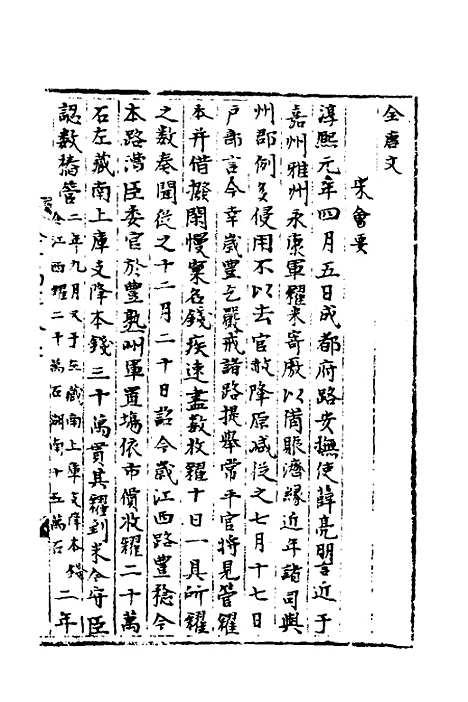 全唐文
宋會要
淳熙元年四月五日成都府路安撫使薛亮明言近于
嘉州雅州永康軍糴米寄廒以備賑濟緣近年諸司與
州郡例多侵用不以去官赦降原減從之七月十七日
戶部言今幸歲豐乞嚴戒諸路提舉常平官將見管糴
本并借撥閑慢窠名錢疾速盡數收糴十日一具所糴
之數奏聞從之十二月二十日詔今歲江西路豐稔令
本路漕臣委官於豐熟州軍置場依市價收糴二十萬
石左藏南上庫支降本錢三十萬貫其糴到米令守臣
認數樁管二年九月又于左藏南上庫支降本錢
令江西糴二十萬石湖南十五萬石
二年